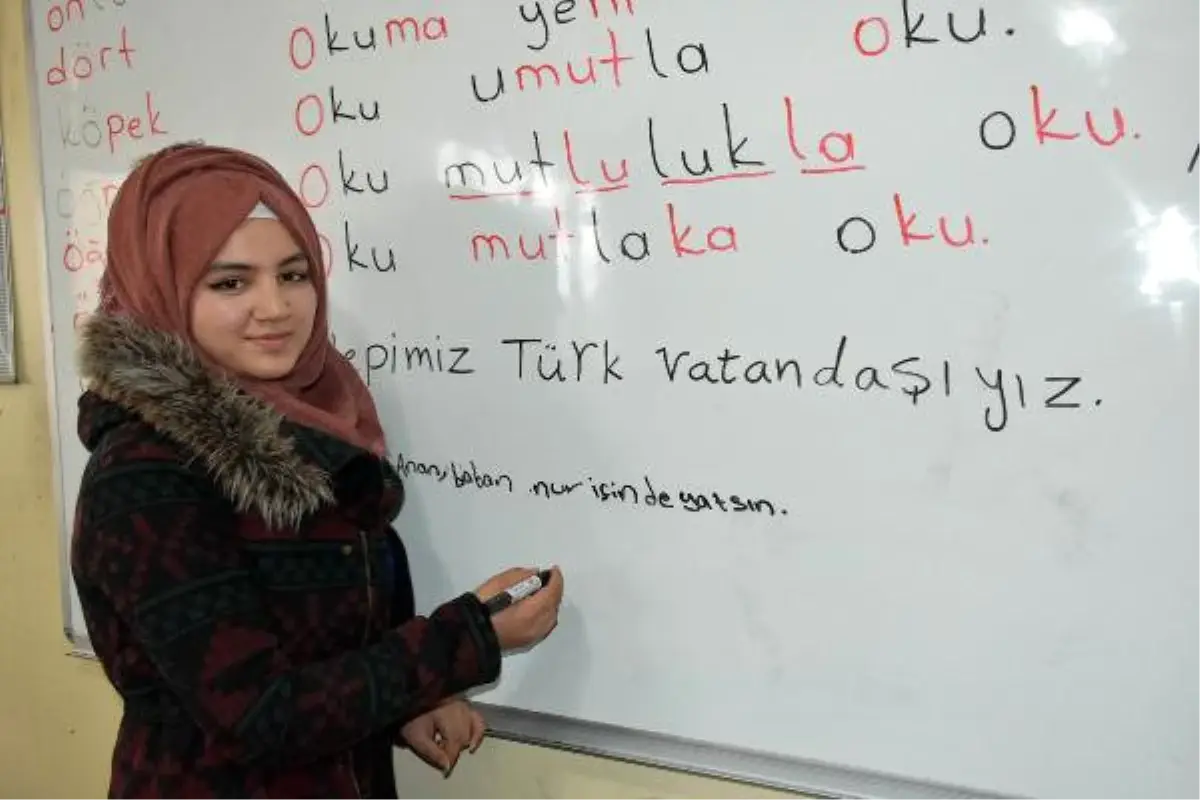 dört Okuma yeni oku.
köpek Oku umutla
Oku mutluluk la oku.
Oku mutlaka oku.
Hepimiz Türk vatandaşıyız.
Anan, baban nur içinde yatsın.